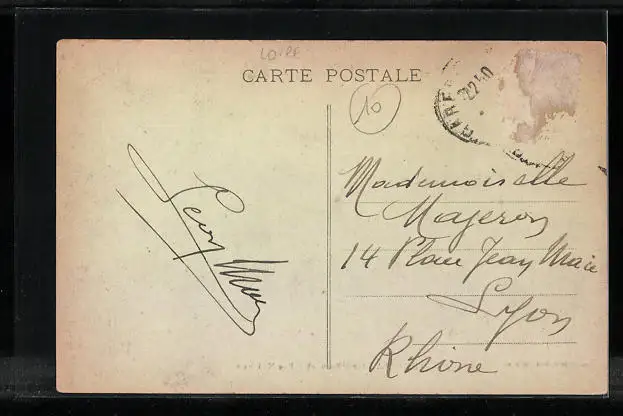 LOIRE
CARTE POSTALE
10
GARE
22 40
Mademoiselle
Majeron
14 Place Jean Macé
Lyon
Rhône